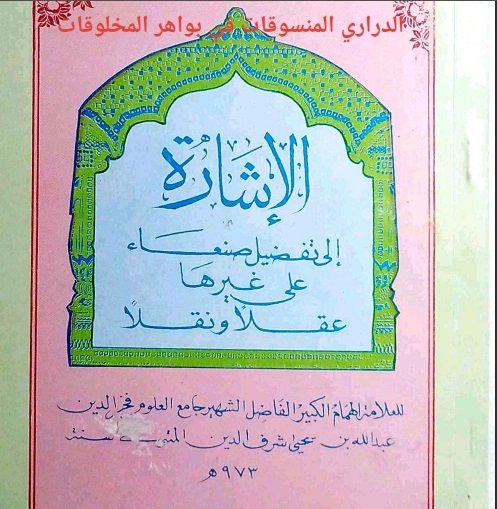 الدراري المنسوقات في بواهر المخلوقات
الإشارة
إلى تفضيل صنعاء
على غيرها
عقلاً ونقلاً
للعلامة الهمام الكبير الفاضل الشهير جامع العلوم فخر الدين
عبدالله بن يحيى شرف الدين المتوفى سنة
٩٧٣هـ